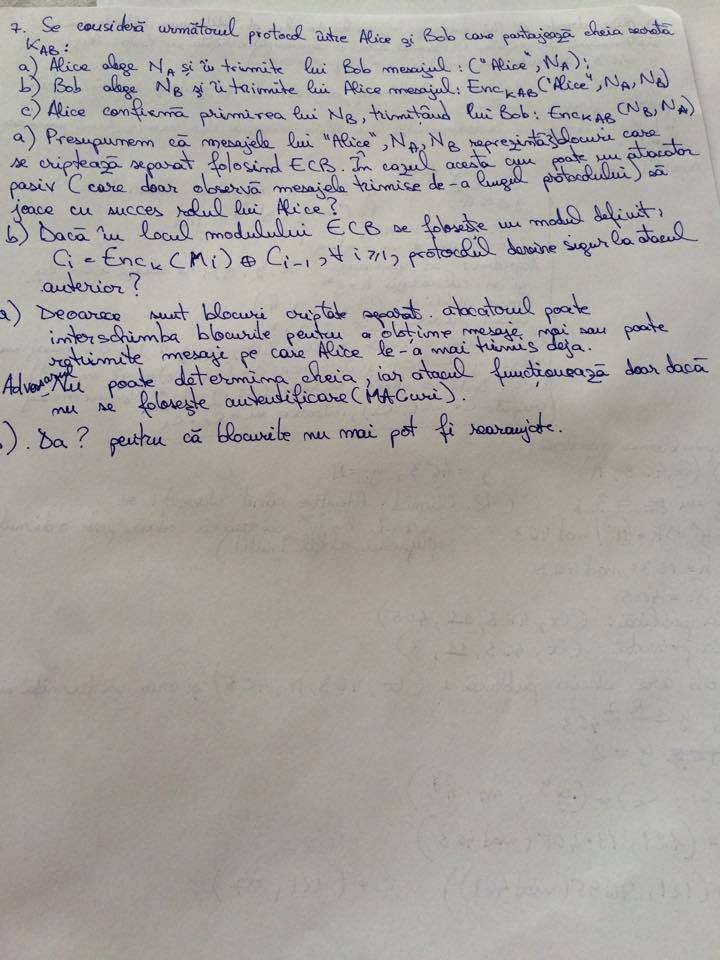 7. Se consideră următorul protocol între Alice și Bob care partajează cheia secretă
KAB:
a) Alice alege NA și îi trimite lui Bob mesajul: ("Alice", NA);
b) Bob alege NB și îi trimite lui Alice mesajul: EncKAB("Alice", NA, NB)
c) Alice confirmă primirea lui NB, trimițând lui Bob: EncKAB(NB, NA)
a) Presupunem că mesajele lui "Alice", NA, NB reprezintă 3 blocuri care
se criptează separat folosind ECB. În cazul acesta cum poate un atacator
pasiv (care doar observă mesajele trimise de-a lungul protocolului) să
joace cu succes rolul lui Alice?
b) Dacă în locul modulului ECB se folosește un modul definit,
Ci = EncK(Mi) ⊕ Ci-1, ∀ i ≥ 1, protocolul devine sigur la atacul
anterior?
a) Deoarece sunt blocuri criptate separat. atacatorul poate
interschimba blocurile pentru a obține mesaje noi sau poate
retrimite mesaje pe care Alice le-a mai trimis deja.
Adversarul Nu poate determina cheia, iar atacul funcționează doar dacă
nu se folosește autentificare (MACuri).
). Da? pentru că blocurile nu mai pot fi rearanjate.